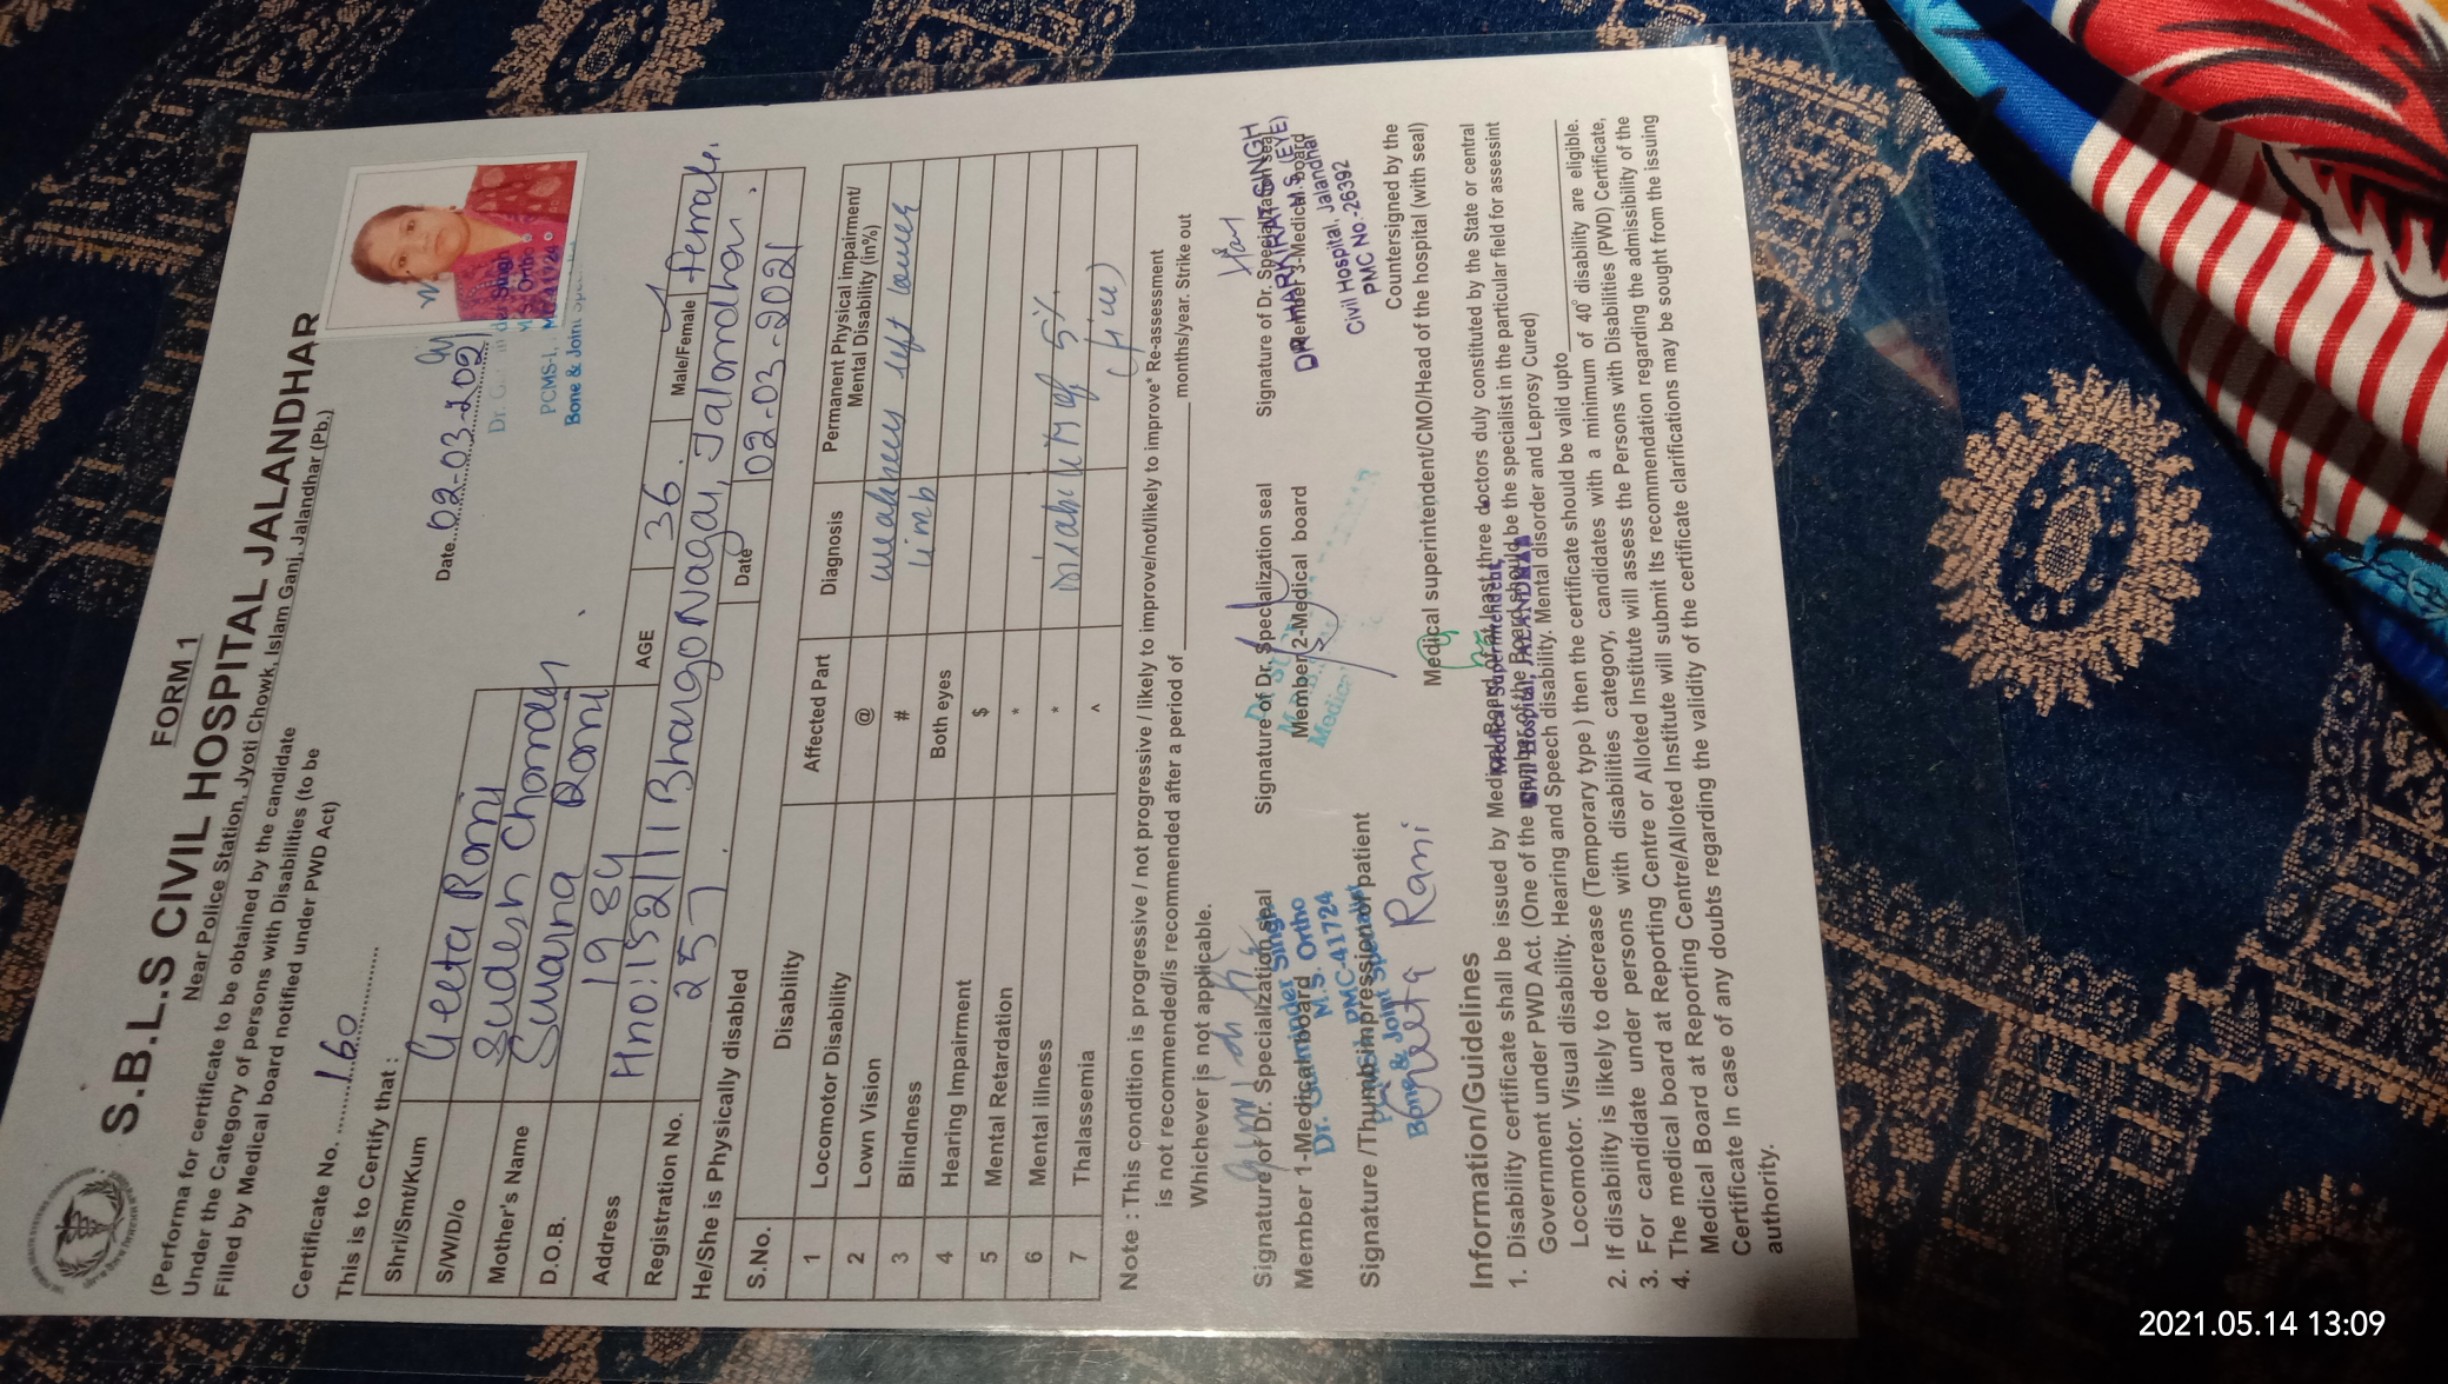 FORM 1
S.B.L.S CIVIL HOSPITAL JALANDHAR
Near Police Station, Jyoti Chowk, Islam Ganj, Jalandhar (Pb.)
(Performa for certificate to be obtained by the candidate
Under the Category of persons with Disabilities (to be
Filled by Medical board notified under PWD Act)
Certificate No. 160
Date 02-03-202
PCMS-I,
Bone & Joint
This is to Certify that :
Shri/Smt/Kum Geeta Rani
S/W/D/o Sudesh Chander
Mother's Name Swarna Rani
D.O.B. 1984 AGE 36. Male/Female Female.
Address Hno:152/11 BhargoNagar, Jalandhar.
Registration No. 257. Date 02-03-2021
He/She is Physically disabled
S.No. Disability Affected Part Diagnosis Permanent Physical impairment/
Mental Disability (in%)
1 Locomotor Disability @ weakness left lower
2 Lown Vision # limb
3 Blindness Both eyes
4 Hearing Impairment $
5 Mental Retardation *
6 Mental illness * 5%
7 Thalassemia ^ (five)
Note : This condition is progressive / not progressive / likely to improve/not/likely to improve* Re-assessment
is not recommended/is recommended after a period of months/year. Strike out
Whichever is not applicable.
Signature of Dr. Specialization seal Signature of Dr. Specialization seal Signature of Dr. Specialization seal
Member 1-Medical board Member 2-Medical board Member 3-Medical board
Dr. Gurminder Singh
M.S. Ortho
PMC-41724
Bone & Joint Specialist
DR. HARKIRAT SINGH
M.S. (EYE)
Civil Hospital, Jalandhar
PMC No.-26392
Signature /Thumb impression of patient
Geeta Rani
Countersigned by the
Medical superintendent/CMO/Head of the hospital (with seal)
Medical Superintendent,
Civil Hospital, JALANDHAR
Information/Guidelines
1. Disability certificate shall be issued by Medical Board of at least three doctors duly constituted by the State or central
Government under PWD Act. (One of the member of the Board should be the specialist in the particular field for assessint
Locomotor. Visual disability. Hearing and Speech disability. Mental disorder and Leprosy Cured)
2. If disability is likely to decrease (Temporary type ) then the certificate should be valid upto
3. For candidate under persons with disabilities category, candidates with a minimum of 40° disability are eligible.
4. The medical board at Reporting Centre or Alloted Institute will assess the Persons with Disabilities (PWD) Certificate,
Medical Board at Reporting Centre/Alloted Institute will submit Its recommendation regarding the admissibility of the
Certificate In case of any doubts regarding the validity of the certificate clarifications may be sought from the issuing
authority.
2021.05.14 13:09